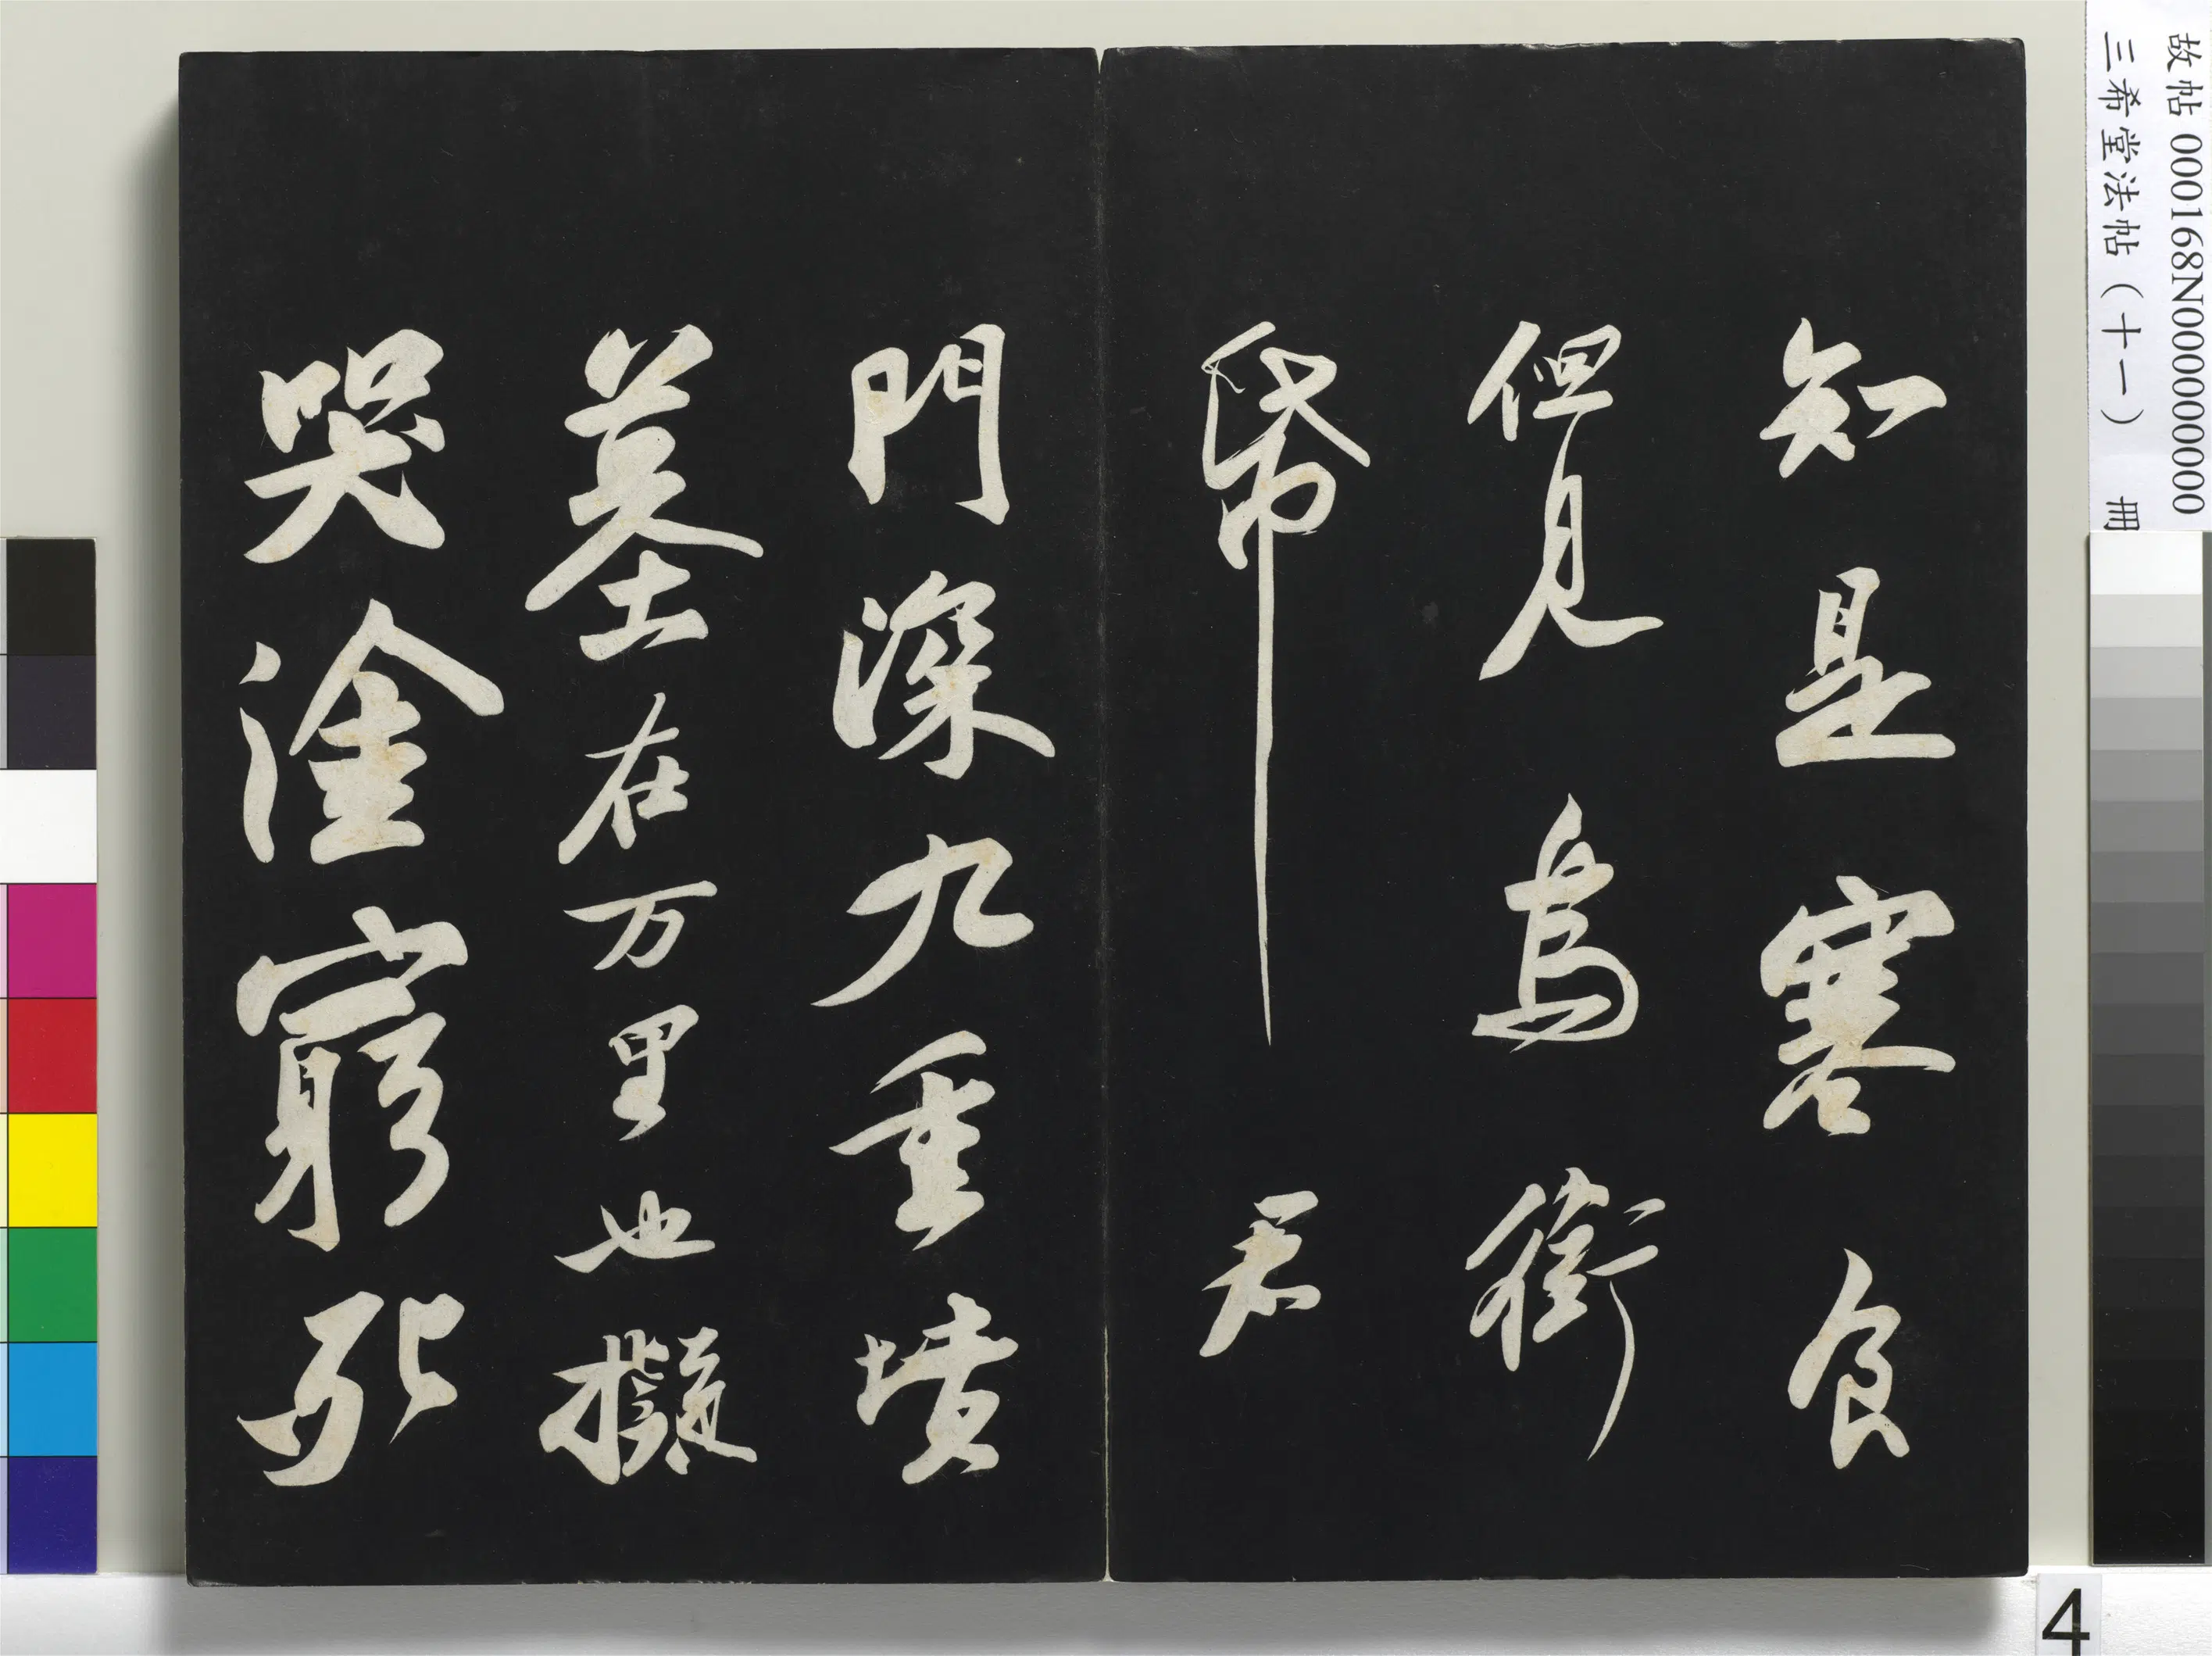 知是寒食
但見烏銜
帋君
門深九重墳
墓在万里也擬
哭塗窮死
故帖 000168N000000000
三希堂法帖（十一） 冊
4